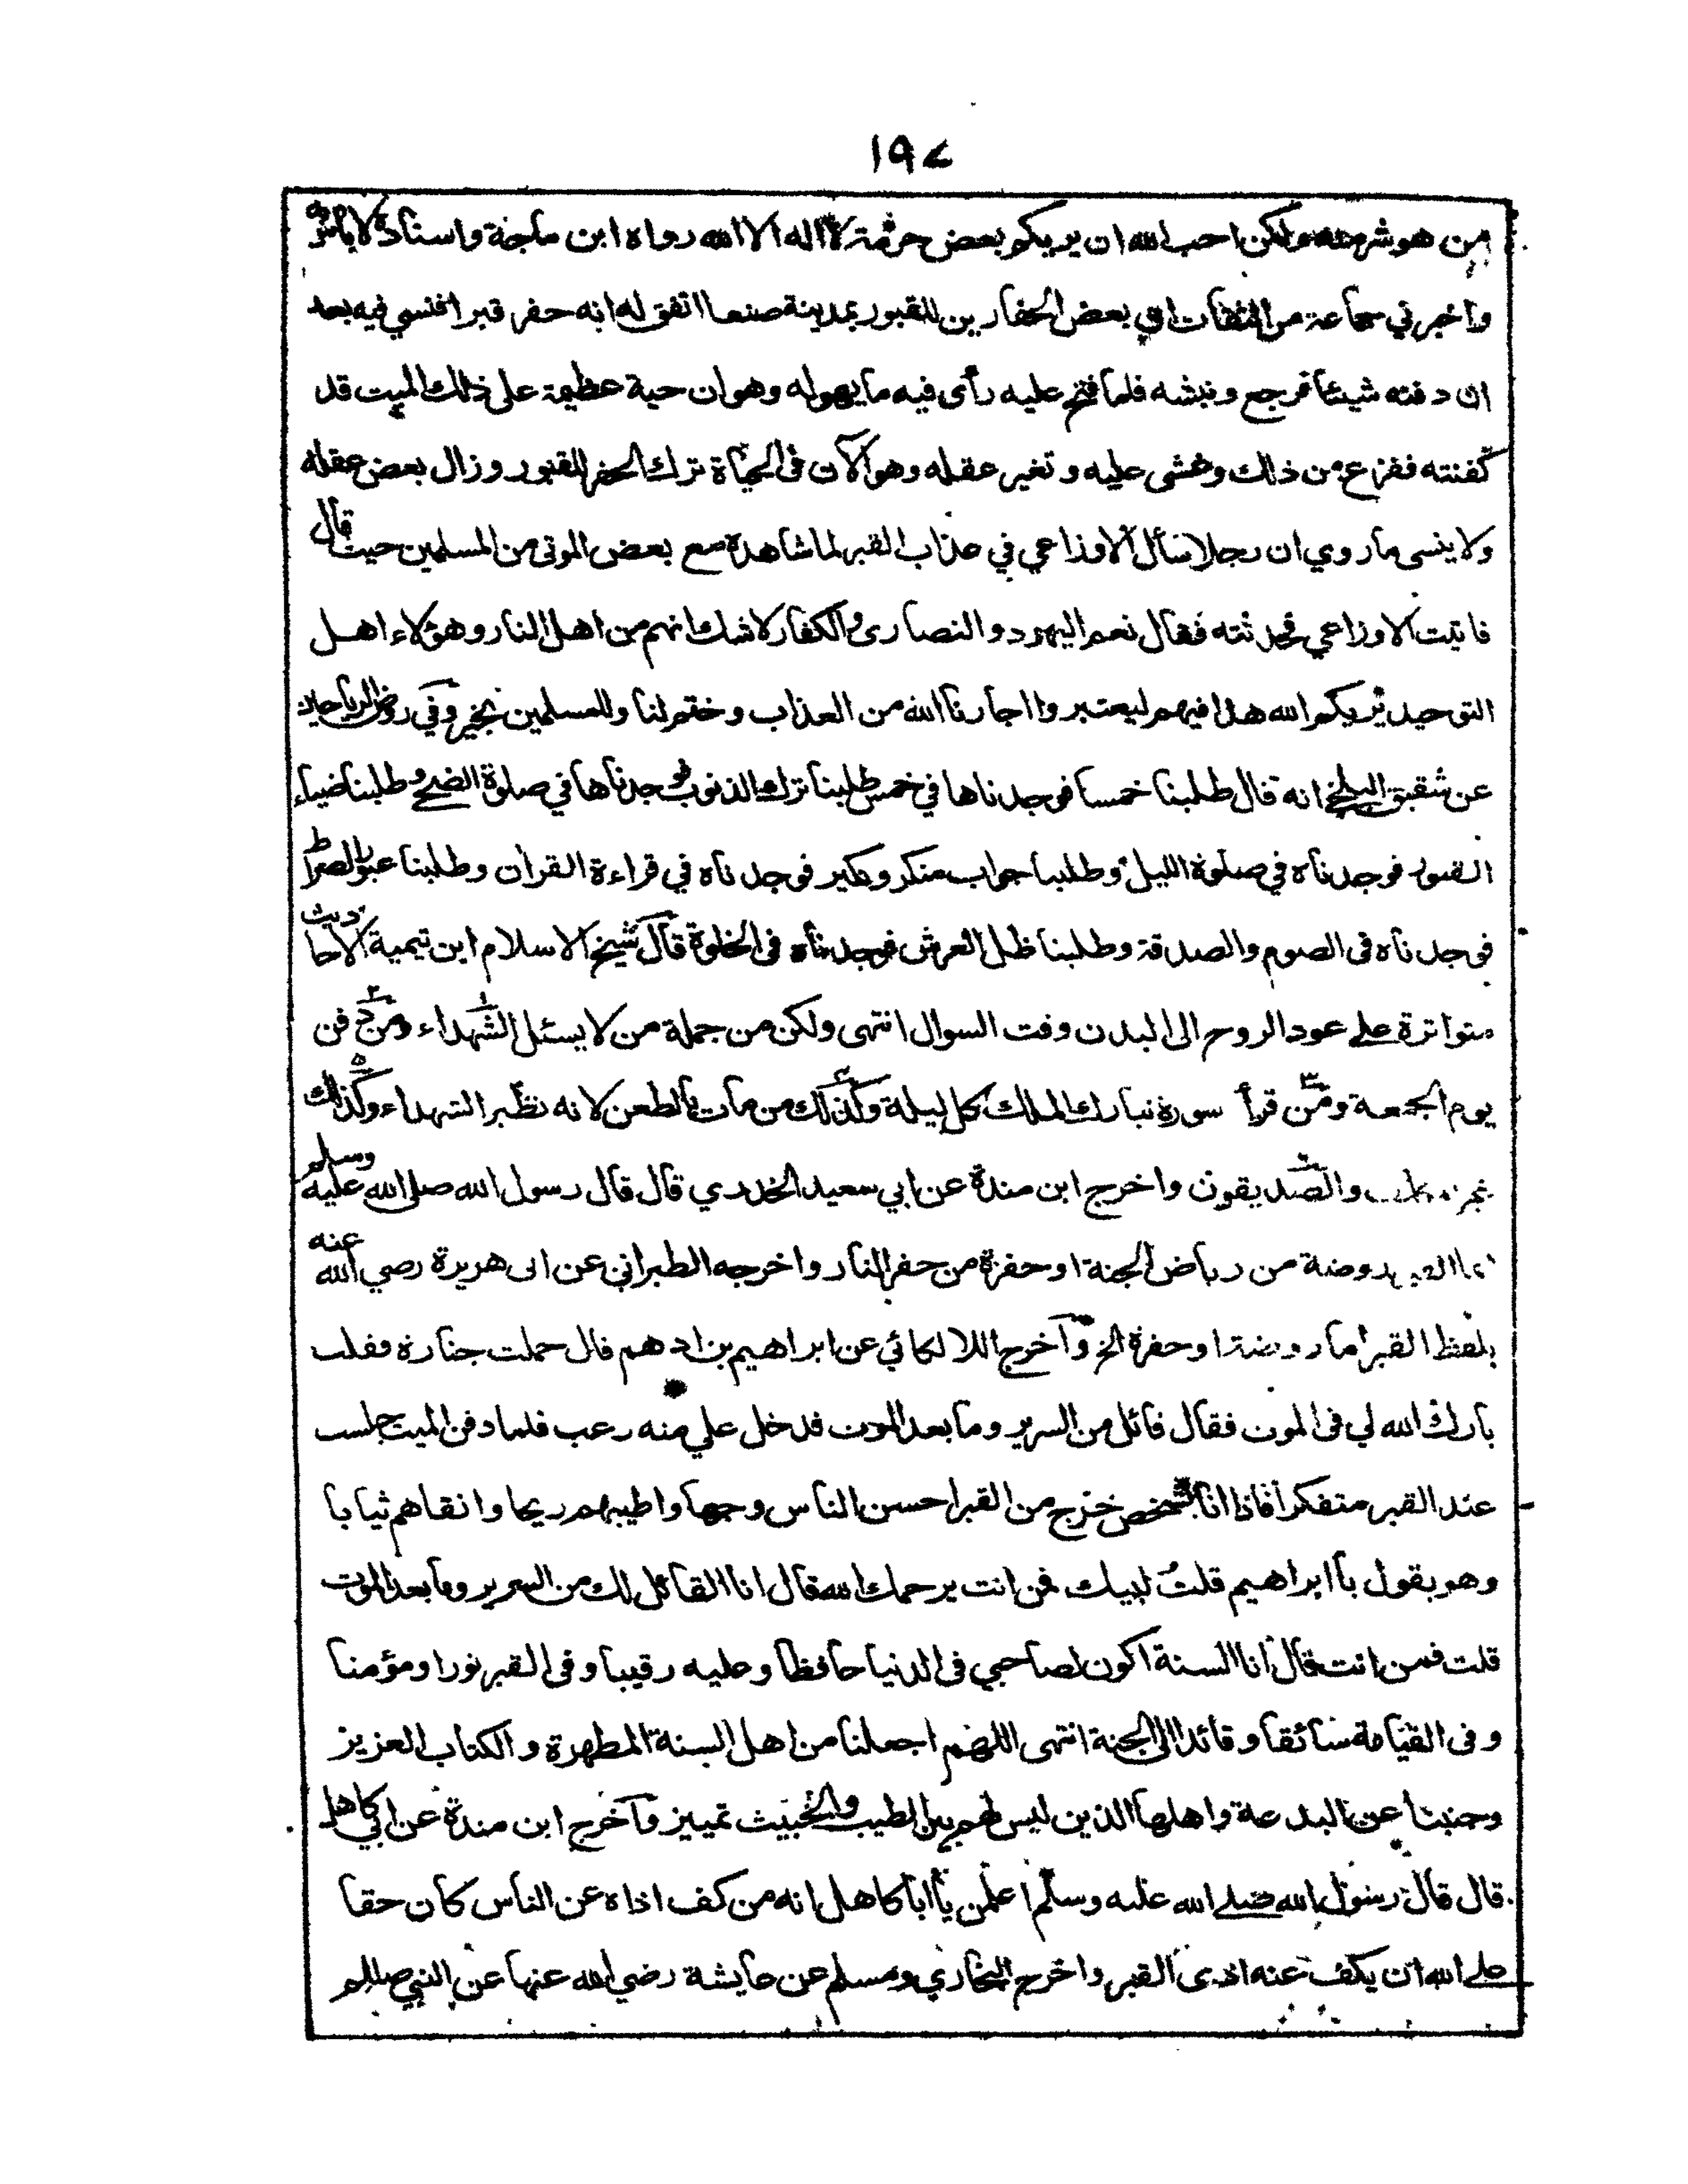 ١٩٧
من هو شر منه ولكن احب الله ان يريكم بعض حرمة لا اله الا الله رواه ابن ماجة واسناده لا باس به
واخبرني جماعة من الثقات ان بعض الحفارين للقبور بمدينة صنعا اتفق له انه حفر قبرا فنسي فيه بعد
ان دفنه شيئا فرجع ونبشه فلما فتح عليه رأى فيه ما يهوله وهو ان حية عظيمة على ذلك الميت قد
كفنته ففزع من ذلك وغشى عليه وتغير عقله وهو الآن فى الحياة ترك الحفر للقبور وزال بعض عقله
ولا ينسى ما روي ان رجلا سأل الاوزاعي في عذاب القبر لما شاهده مع بعض الموتى من المسلمين حيث قال
فاتيت الاوزاعي فحدثته فقال نعم اليهود والنصارى والكفار لا شك انهم من اهل النار وهؤلاء اهل
التوحيد يريكم الله هذا فيهم ليعتبروا اجارنا الله من العذاب وختم لنا وللمسلمين بخير وفي روض الرياحين
عن شقيق البلخي انه قال طلبنا خمسا فوجدناها في خمس طلبنا ترك الذنوب فوجدناها في صلوة الضحى وطلبنا ضياء
القبور فوجدناه في صلوة الليل وطلبنا جواب منكر ونكير فوجدناه في قراءة القران وطلبنا عبور الصراط
فوجدناه فى الصوم والصدقة وطلبنا ظل العرش فوجدناه فى الخلوة قال شيخ الاسلام ابن تيمية الاحاديث
متواترة على عود الروح الى البدن وقت السوال انتهى ولكن من جملة من لا يسئل الشهداء ومن دفن
يوم الجمعة ومن قرأ سورة تبارك الملك كل ليلة وكذلك من مات بالطعن لانه نظير الشهداء وكذلك
والصديقون واخرج ابن مندة عن ابي سعيد الخدري قال قال رسول الله صلى الله عليه وسلم
روضة من رياض الجنة او حفرة من حفر النار واخرجه الطبراني عن ابى هريرة رضي الله عنه
بلفظ القبر اما روضة او حفرة الخ وآخرج اللالكائي عن ابراهيم بن ادهم قال حملت جنازة فقلت
بارك الله لي فى الموت فقال قائل من السرير وما بعد الموت فدخل علي منه رعب فلما دفن الميت جلست
عند القبر متفكرا فاذا انا بشخص خرج من القبر احسن الناس وجها واطيبهم ريحا وانقاهم ثيابا
وهو يقول يا ابراهيم قلت لبيك فمن انت يرحمك الله قال انا القائل لك من السرير وما بعد الموت
قلت فمن انت قال انا السنة اكون لصاحبي فى الدنيا حافظا وعليه رقيبا وفى القبر نورا ومؤمنا
وفى القيامة سائقا وقائدا الى الجنة انتهى اللهم اجعلنا من اهل السنة المطهرة والكتاب العزيز
وجنبنا عن البدعة واهلها الذين ليس لهم بين الطيب والخبيث تمييز وآخرج ابن مندة عن ابي كاهل
قال قال رسول الله صلى الله عليه وسلم اعلمن يا ابا كاهل انه من كف اذاه عن الناس كان حقا
على الله ان يكف عنه اذى القبر واخرج البخاري ومسلم عن عايشة رضي الله عنها عن النبي صللم